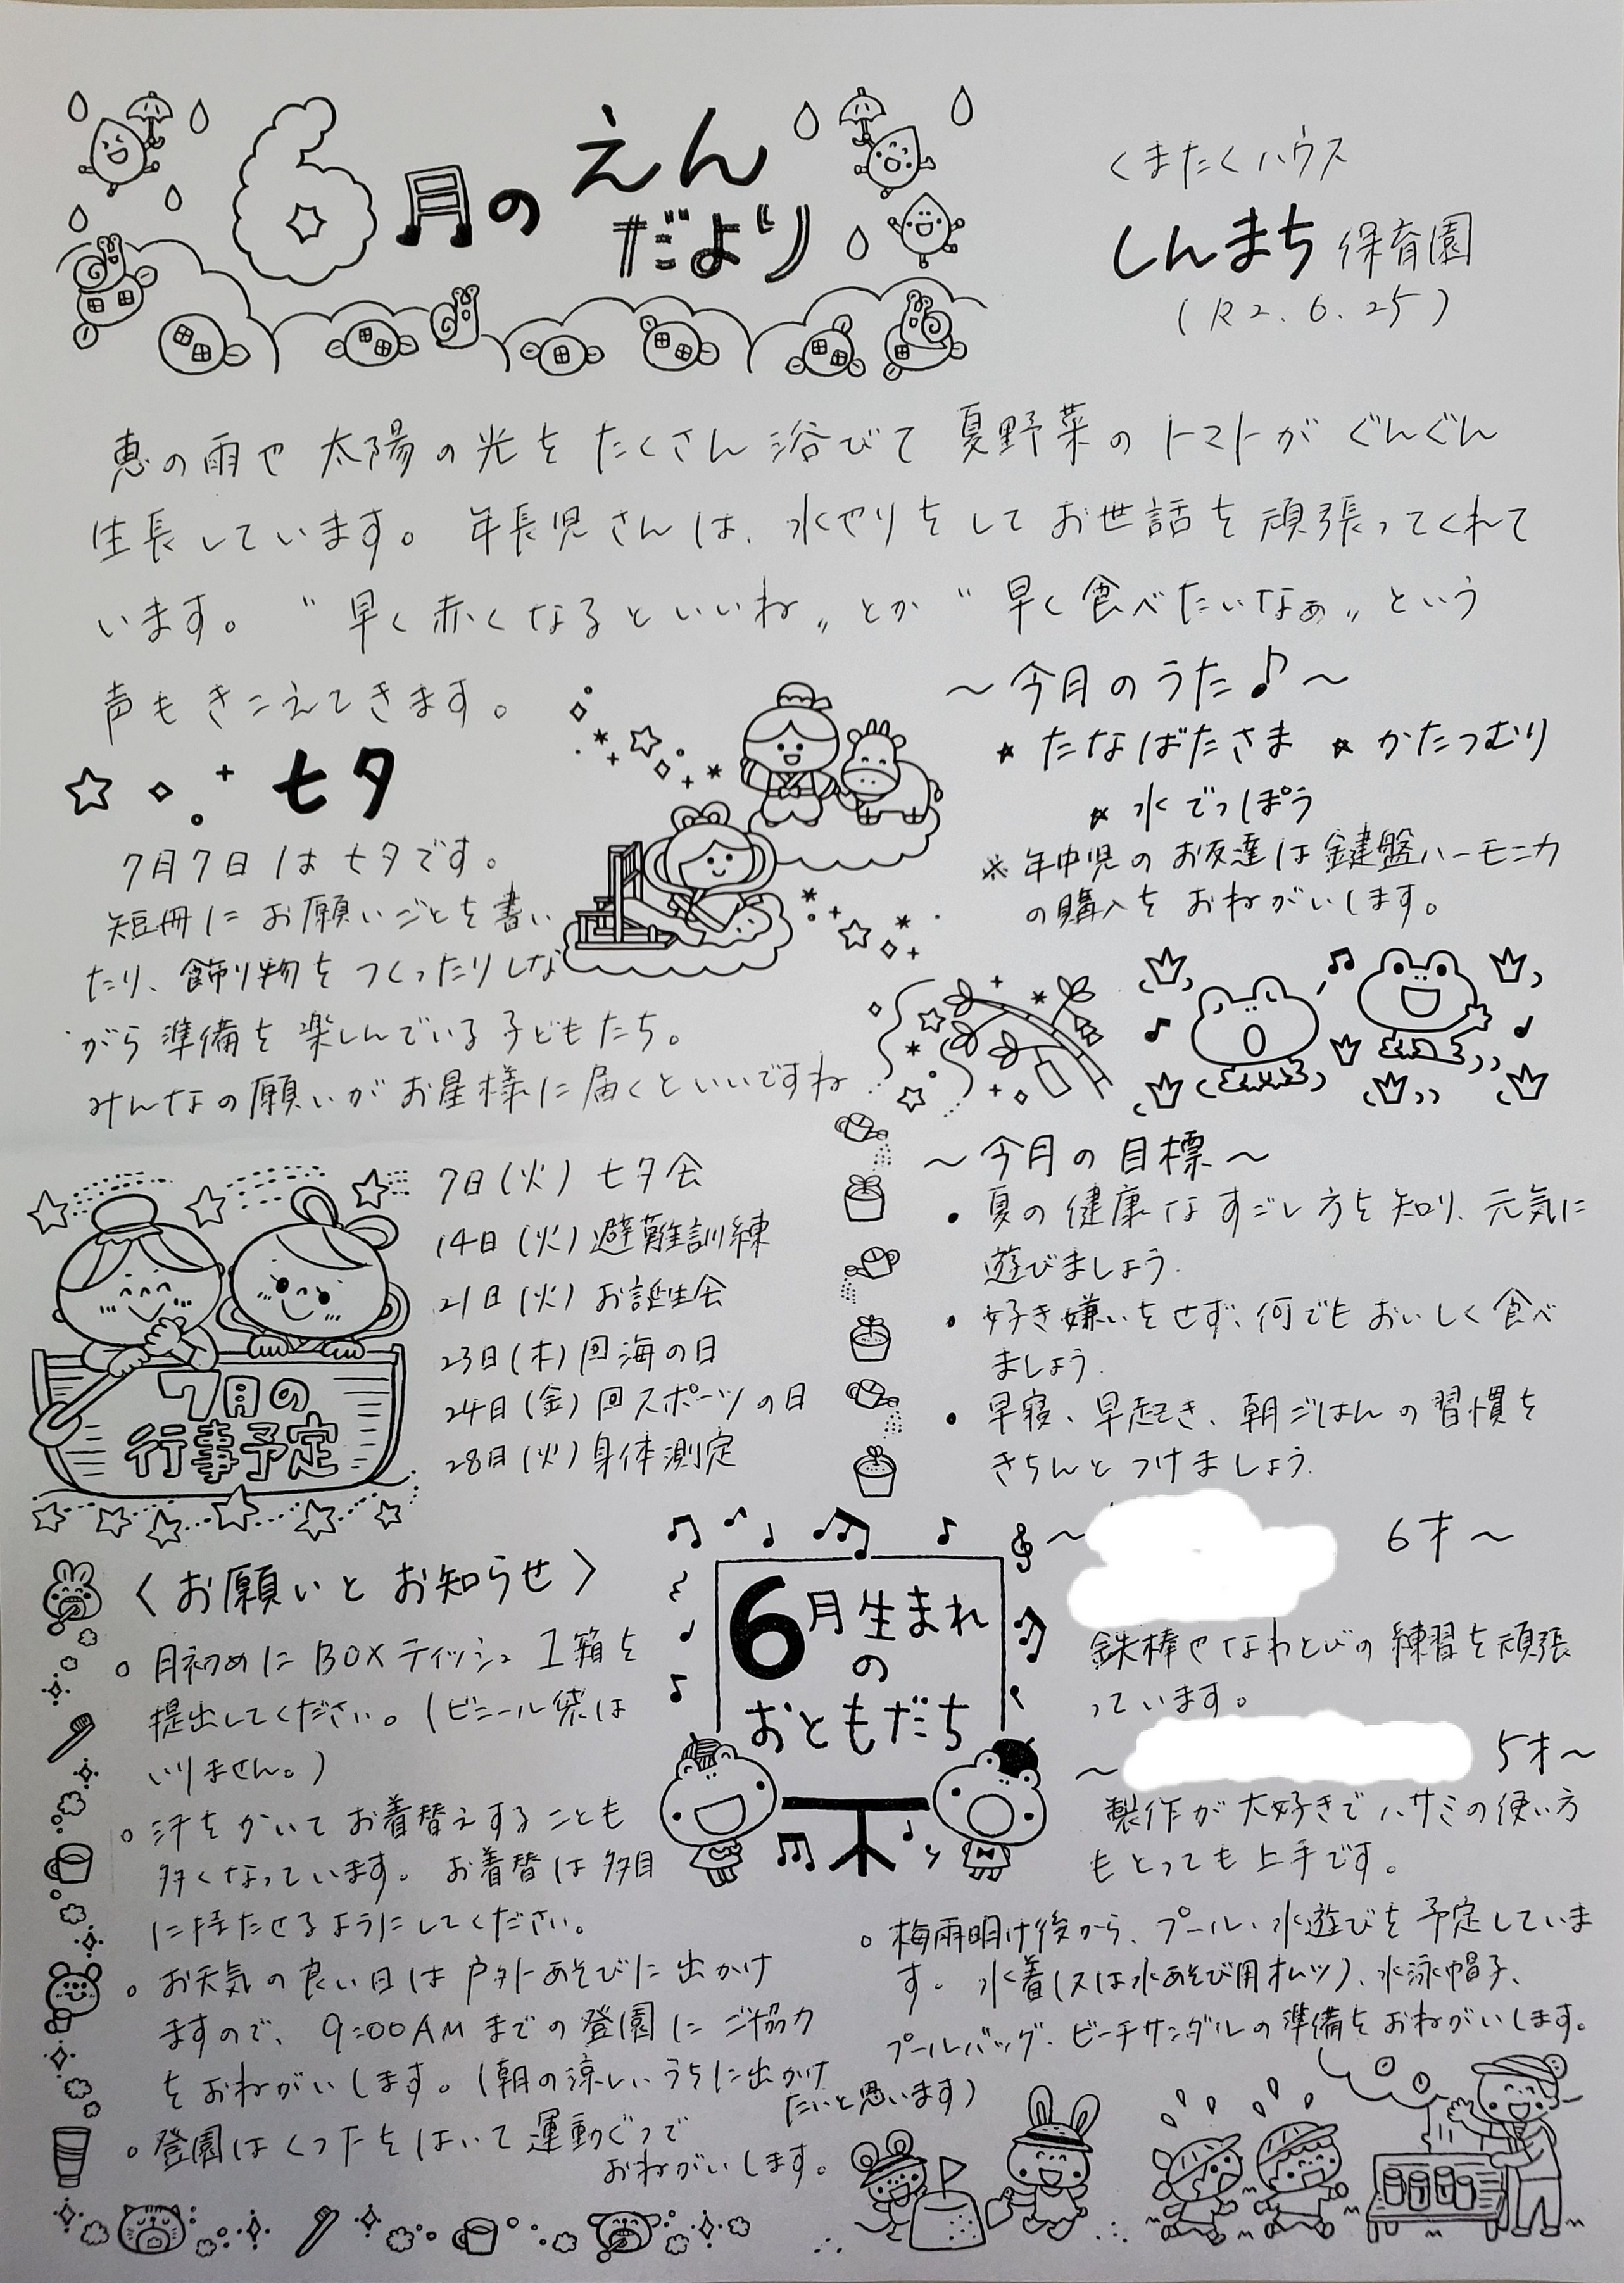 6月のえんだより
くまたくハウス
しんまち保育園
(R2.6.25)
恵の雨や太陽の光をたくさん浴びて夏野菜のトマトがぐんぐん
生長しています。年長児さんは、水やりをしてお世話を頑張ってくれて
います。〝早く赤くなるといいね〟とか〝早く食べたいなぁ〟という
声もきこえてきます。
七夕
7月7日は七夕です。
短冊にお願いごとを書い
たり、飾り物をつくったりしな
がら準備を楽しんでいる子どもたち。
みんなの願いがお星様に届くといいですね
～今月のうた♪～
★たなばたさま ★かたつむり
★水でっぽう
※年中児のお友達は鍵盤ハーモニカ
の購入をおねがいします。
7月の
行事予定
7日(火)七夕会
14日(火)避難訓練
21日(火)お誕生会
23日(木)回海の日
24日(金)回スポーツの日
28日(火)身体測定
～今月の目標～
・夏の健康なすごし方を知り、元気に
遊びましょう.
・好き嫌いをせず、何でもおいしく食べ
ましょう.
・早寝、早起き、朝ごはんの習慣を
きちんとつけましょう.
〈お願いとお知らせ〉
○月初めにBOXティッシュ1箱を
提出してください。(ビニール袋は
いりません。)
○汗をかいてお着替えすることも
多くなっています。お着替は多目
に持たせるようにしてください。
○お天気の良い日は戸外あそびに出かけ
ますので、9:00AMまでの登園にご協力
をおねがいします。(朝の涼しいうちに出かけ
たいと思います)
○登園はくつ下をはいて運動ぐつで
おねがいします。
6月生まれ
の
おともだち
～ 6才～
鉄棒やなわとびの練習を頑張
っています。
～ 5才～
製作が大好きでハサミの使い方
もとっても上手です。
○梅雨明け後から、プール・水遊びを予定していま
す。水着(又は水あそび用オムツ)、水泳帽子、
プールバッグ・ビーチサンダルの準備をおねがいします。